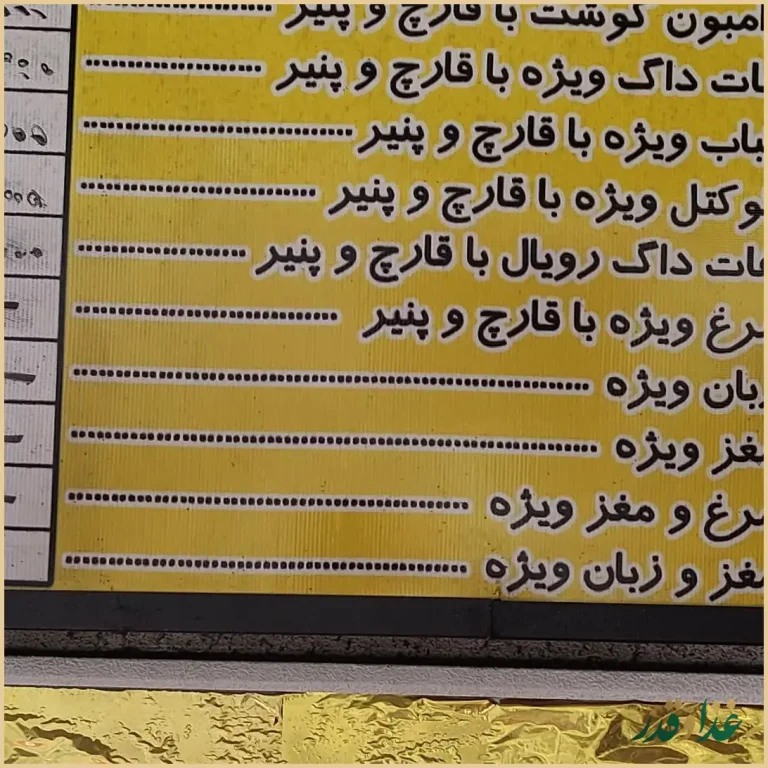 امبون گوشت با قارچ و پنیر
ات داگ ویژه با قارچ و پنیر
باب ویژه با قارچ و پنیر
وکتل ویژه با قارچ و پنیر
ات داگ رویال با قارچ و پنیر
رغ ویژه با قارچ و پنیر
زبان ویژه
مغز ویژه
مرغ و مغز ویژه
مغز و زبان ویژه